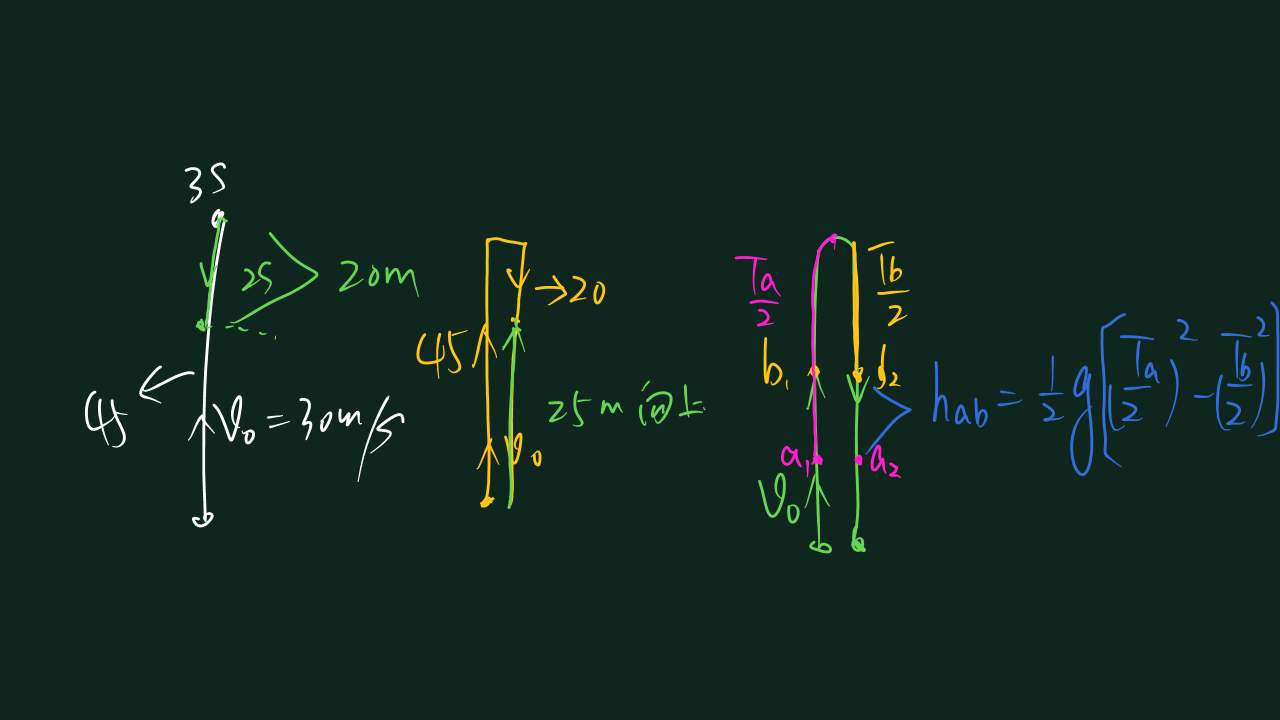 3S
2S
20m
45
V₀=30m/s
→20
45
25m 向上
V₀
Ta/2
Tb/2
b₁
b₂
a₁
a₂
V₀
hab=1/2g[(Ta/2)²-(Tb/2)²]